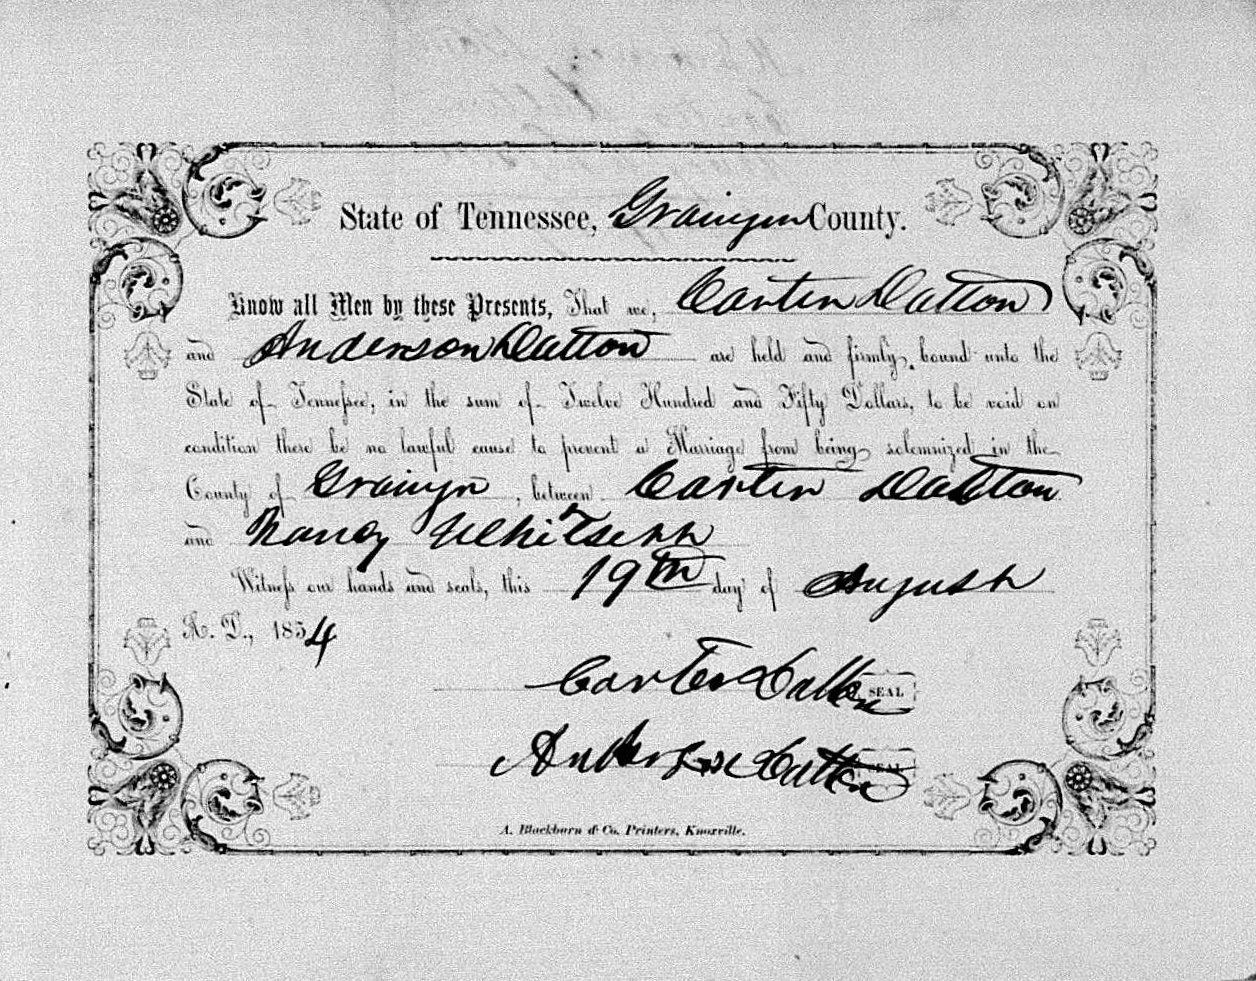 State of Tennessee, Grainger County.
Know all Men by these Presents, That we, Carter Dalton
and Anderson Dalton are held and firmly bound unto the
State of Tennessee, in the sum of Twelve Hundred and Fifty Dollars, to be void on
condition there be no lawful cause to prevent a Marriage from being solemnized in the
County of Grainger, between Carter Dalton
and Nancy Whitsenn
Witness our hands and seals, this 19th day of August
A. D., 1854
Carter Dalton SEAL
Anderson Dalton SEAL
A. Blackburn & Co. Printers, Knoxville.